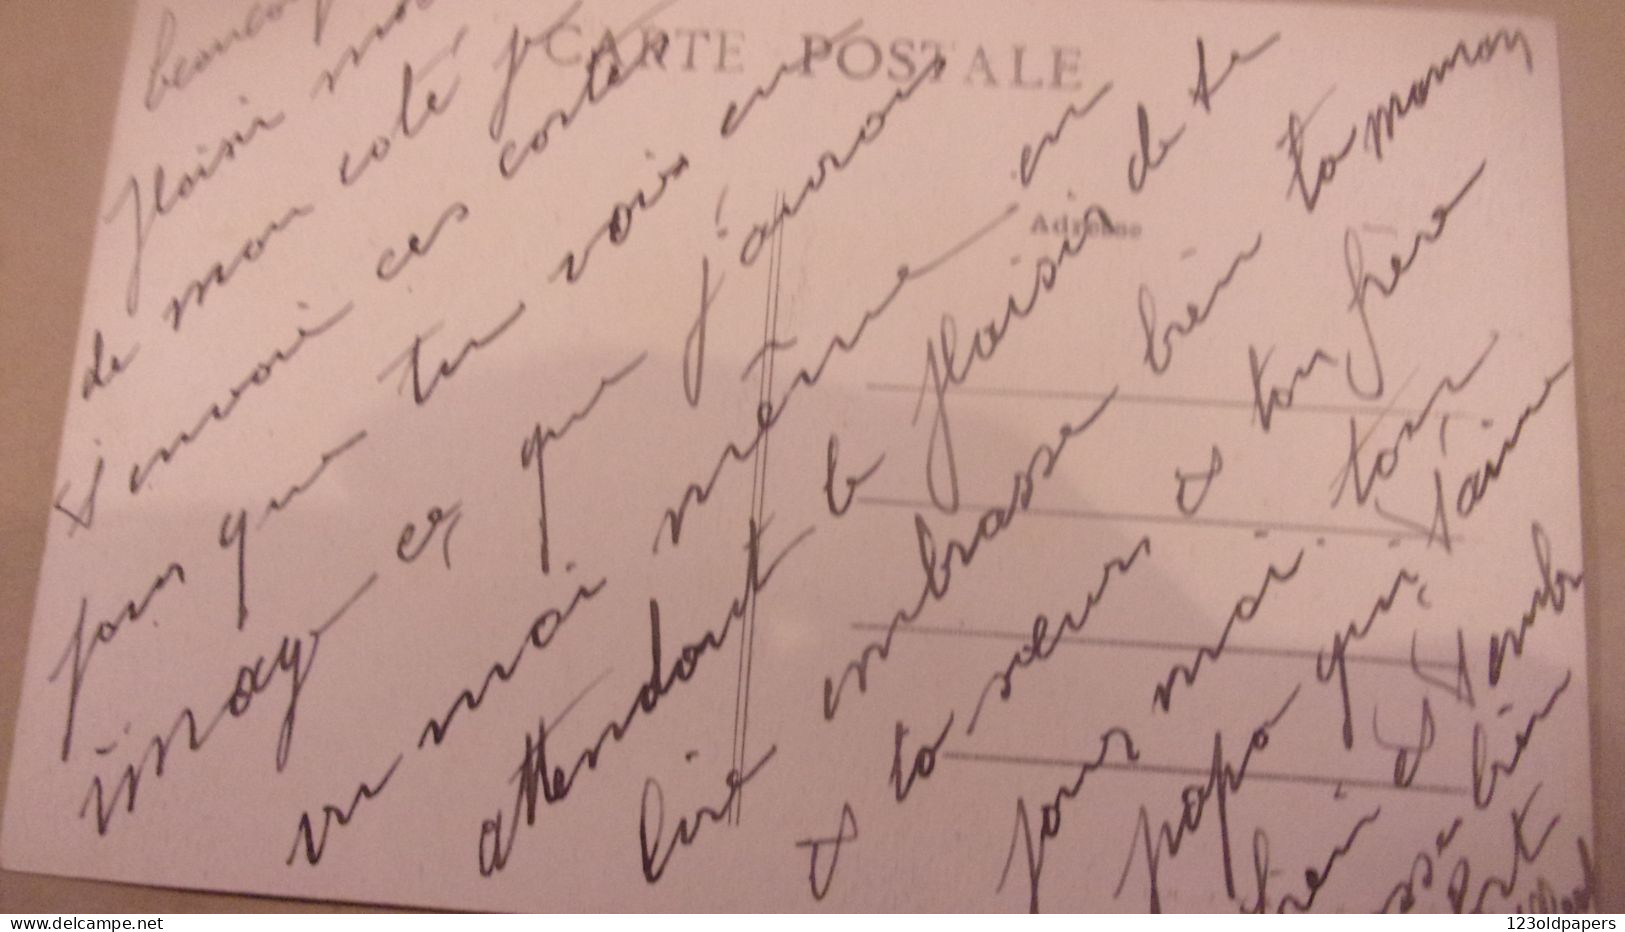 CARTE POSTALE
Adresse
beaucoup
plaisir
de mon coté je
t'envoie ces cartes
pour que tu vois en
image ce que j'aurons
vu moi même en
attendant le plaisir de te
lire embrasse bien ta maman
& ta soeur & ton frère
pour moi. ton
papa qui t'aime
bien & t'emb
sse bien
delcampe.net
123oldpapers